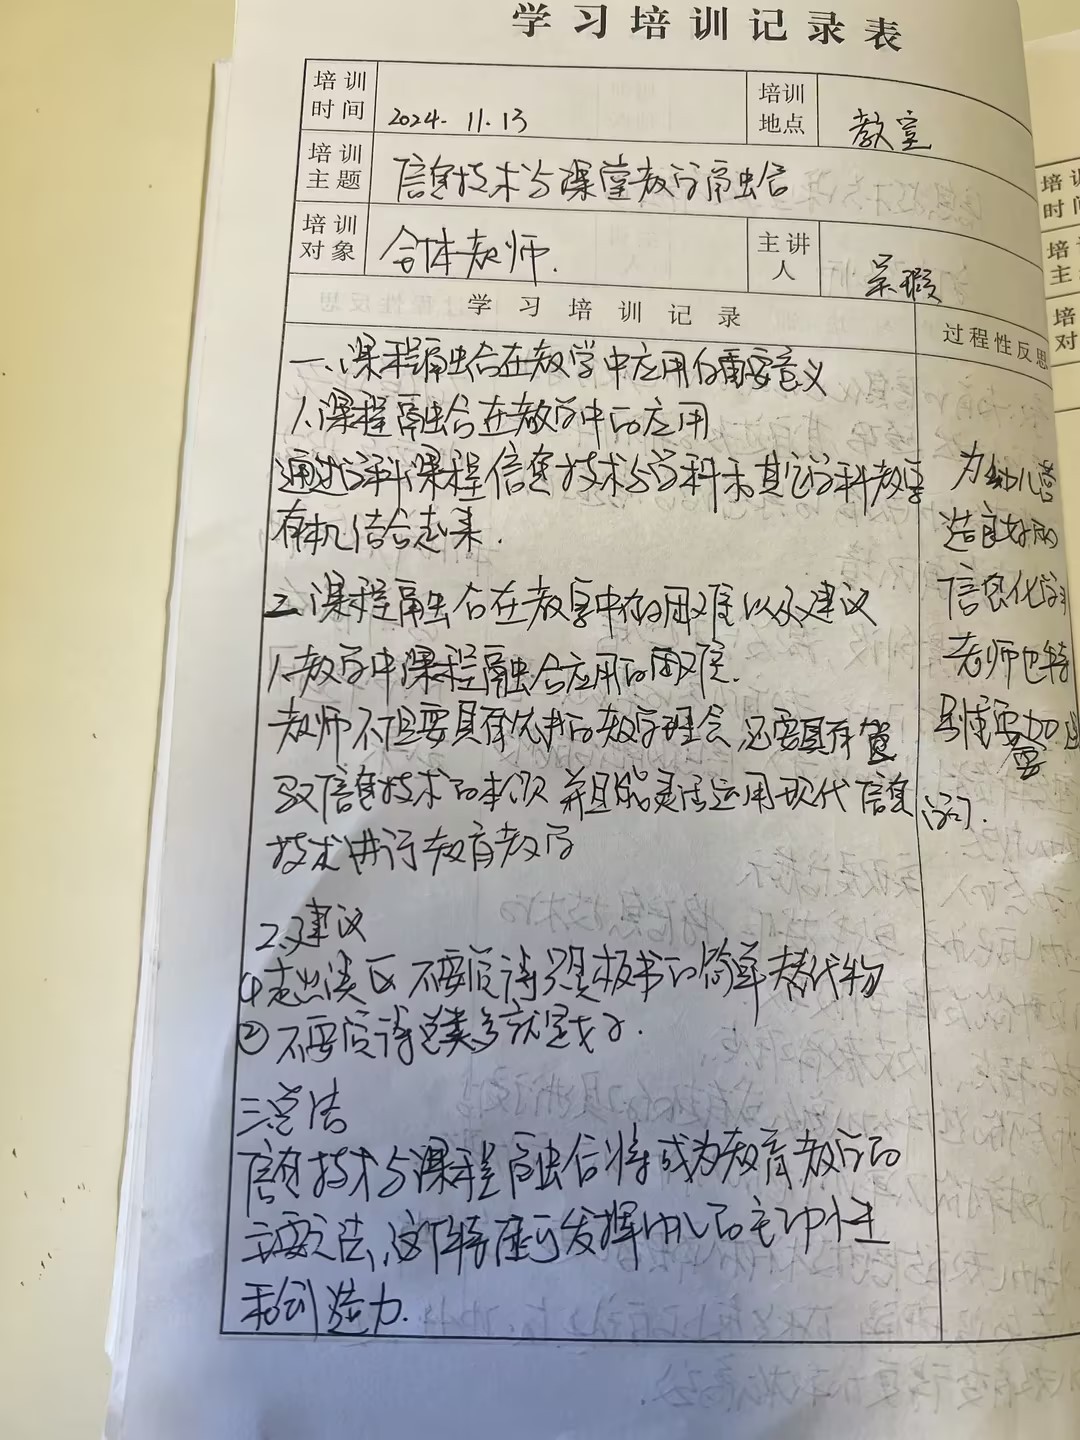 学习培训记录表
培训时间 2024.11.13 培训地点 教室
培训主题 信息技术与课堂教学融合
培训对象 全体老师. 主讲人 吴瑕
学习培训记录 过程性反思
一、课程融合在教学中应用的重要意义
1.课程融合在教学中的应用
通过学科课程信息技术与学科和其它学科教学
有机结合起来.
二.课程融合在教学中存的困难以及建议
1.教学中课程融合应用的困难.
老师不但要具有先进的教学理念,还要具有驾
驭信息技术的本领并且能灵活运用现代信息
技术进行教育教学
2.建议
①走出误区 不要误读只是板书的简单替代物
②不要误读总类多就是好.
三.总结
信息技术与课程融合将成为教育教学的
主要方法,这样可发挥幼儿的主动性
和创造力.
为幼儿营
造良好的
信息化
老师也特
别重要
学习.
培训
时间
培
主
培
对